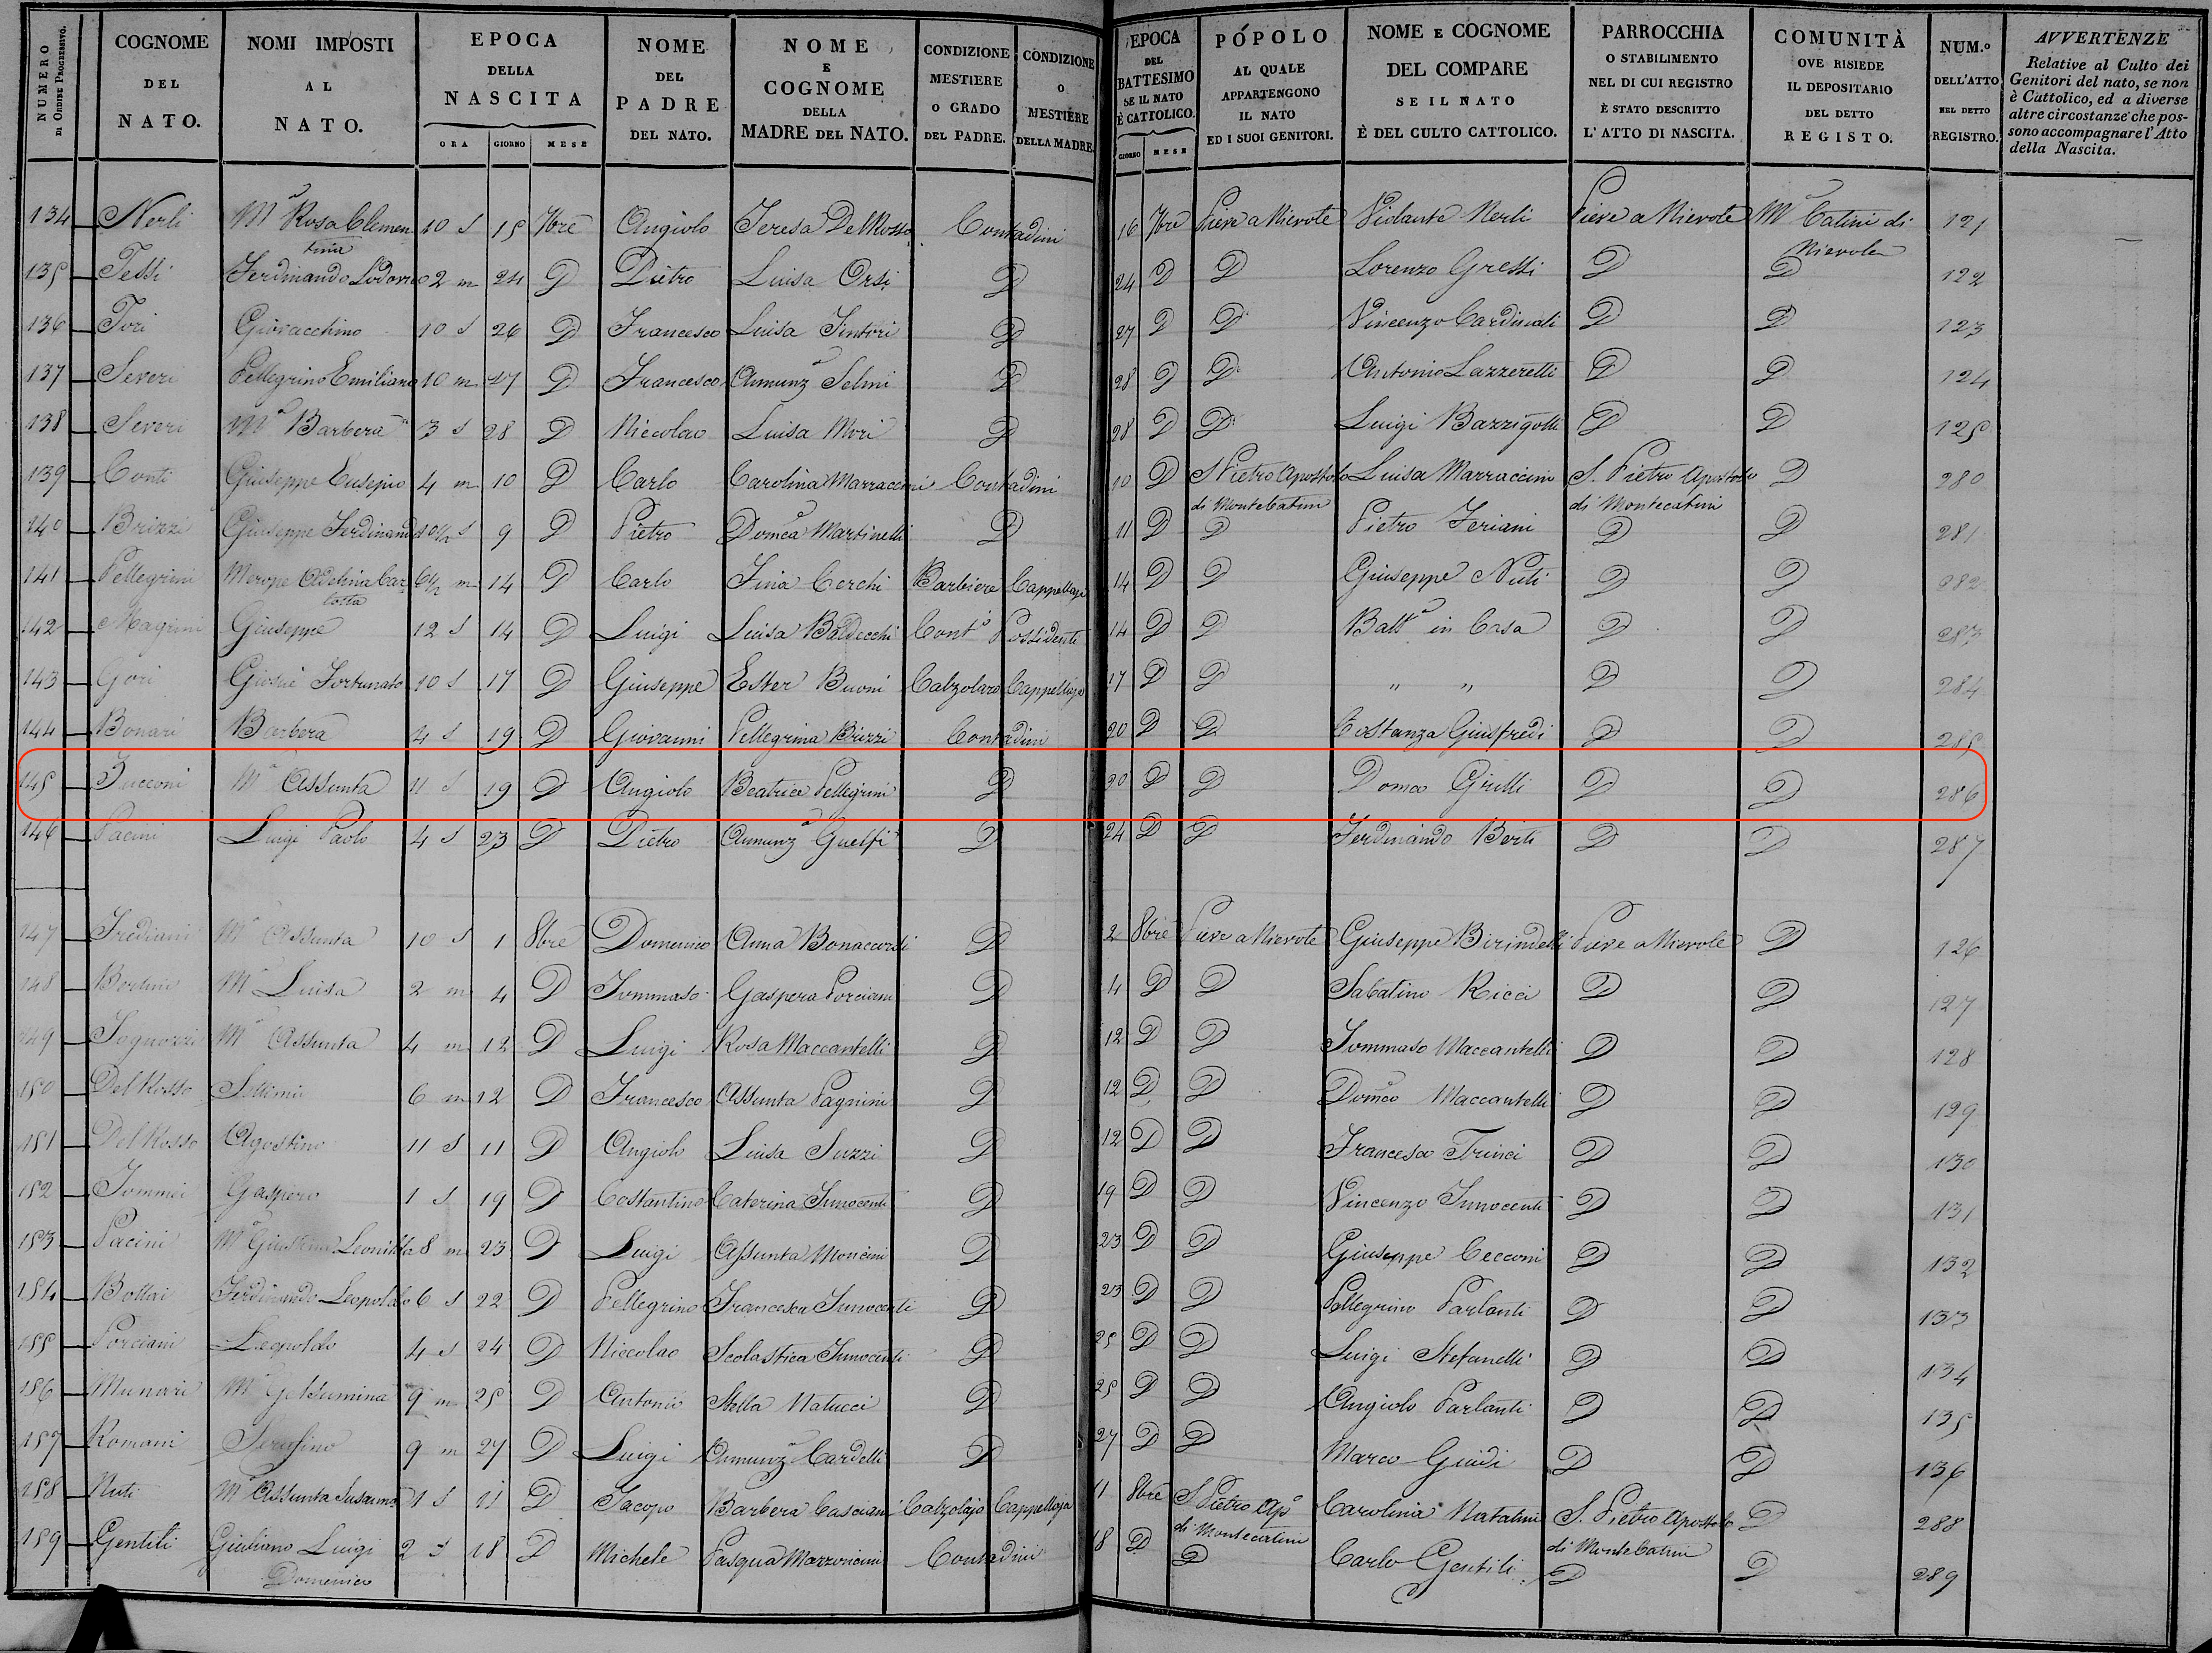 NUMERO DI ORDINE PROGRESSIVO.
COGNOME DEL NATO.
NOMI IMPOSTI AL NATO.
EPOCA DELLA NASCITA
ORA GIORNO MESE
NOME DEL PADRE DEL NATO.
NOME E COGNOME DELLA MADRE DEL NATO.
CONDIZIONE MESTIERE O GRADO DEL PADRE.
CONDIZIONE O MESTIERE DELLA MADRE.
EPOCA DEL BATTESIMO SE IL NATO È CATTOLICO.
GIORNO MESE
PÓPOLO AL QUALE APPARTENGONO IL NATO ED I SUOI GENITORI.
NOME E COGNOME DEL COMPARE SE IL NATO È DEL CULTO CATTOLICO.
PARROCCHIA O STABILIMENTO NEL DI CUI REGISTRO È STATO DESCRITTO L'ATTO DI NASCITA.
COMUNITÀ OVE RISIEDE IL DEPOSITARIO DEL DETTO REGISTO.
NUM.º DELL'ATTO NEL DETTO REGISTRO.
AVVERTENZE Relative al Culto dei Genitori del nato, se non è Cattolico, ed a diverse altre circostanze che possono accompagnare l'Atto della Nascita.
134 Nerli Mª Rosa Clementina 10 S 15 7bre Angiolo Teresa Del Rosso Contadini 16 7bre Pieve a Nievole Violante Nerli Pieve a Nievole Mte Catini di Nievole 121
135 Tessi Ferdinando Lodovico 2 m 24 D Pietro Luisa Orsi D 24 D D Lorenzo Gressi D D 122
136 Tori Giovacchino 10 S 26 D Francesco Luisa Tintori D 27 D D Vincenzo Cardinali D D 123
137 Severi Pellegrino Emiliano 10 m 27 D Francesco Annunzª Selmi D 28 D D Antonio Lazzeretti D D 124
138 Severi Mª Barbera 3 S 28 D Niccolao Luisa Mori D 28 D D Luigi Bazzigotti D D 125
139 Conti Giuseppe Eusepio 4 m 10 D Carlo Carolina Marraccini Contadini 10 D S Pietro Apostolo di MonteCatini Luisa Marraccini S. Pietro Apostolo di Montecatini D 280
140 Brizzi Giuseppe Ferdinando 10½ S 9 D Pietro Domca Martinelli D 11 D D Pietro Feriani D D 281
141 Pellegrini Merope Adelina Carlotta 6½ m 14 D Carlo Fina Cerchi Barbiere Cappellaja 14 D D Giuseppe Nuti D D 282
142 Magrini Giuseppe 12 S 14 D Luigi Luisa Baldecchi Contº Possidente 14 D D Battº in Casa D D 283
143 Gori Giosuè Fortunato 10 S 17 D Giuseppe Ester Buoni Calzolaro Cappellaja 17 D D " " D D 284
144 Bonari Barbera 4 S 19 D Giovanni Pellegrina Brizzi Contadini 20 D D Costanza Giusfredi D D 285
145 Jucconi Mª Assunta 11 S 19 D Angiolo Beatrice Pellegrini D 20 D D Domco Grilli D D 286
146 Pacini Luigi Paolo 4 S 23 D Pietro Annunzª Guelfi D 24 D D Ferdinando Berti D D 287
147 Frediani Mª Assunta 10 S 1 8bre Domenico Anna Bonaccorsi D 2 8bre Pieve a Nievole Giuseppe Birindelli Pieve a Nievole D 126
148 Bertini Mª Luisa 2 m 4 D Tommaso Gaspera Porciani D 4 D D Sabatino Ricci D D 127
149 Tognozzi Mª Assunta 4 m 12 D Luigi Rosa Maccantelli D 12 D D Tommaso Maccantelli D D 128
150 Del Rosso Settimio 6 m 12 D Francesco Assunta Pagnini D 12 D D Domco Maccantelli D D 129
151 Del Rosso Agostino 11 S 11 D Angiolo Luisa Suzzi D 12 D D Francesco Trinci D D 130
152 Tommei Gaspero 1 S 19 D Costantino Caterina Innocenti D 19 D D Vincenzo Innocenti D D 131
153 Pacini Mª Giustina Leonilda 8 m 23 D Luigi Assunta Moncini D 23 D D Giuseppe Cecconi D D 132
154 Bottai Ferdinando Leopoldo 6 S 22 D Pellegrino Francesca Innocenti D 23 D D Pellegrino Parlanti D D 133
155 Porciani Leopoldo 4 S 24 D Niccolao Scolastica Innocenti D 25 D D Luigi Stefanelli D D 134
156 Munari Mª Gelsumina 9 m 25 D Antonio Stella Natucci D 25 D D Angiolo Parlanti D D 135
157 Romani Serafino 9 m 27 D Luigi Annunzª Cardelli D 27 D D Marco Guidi D D 136
158 Nuti Mª Assunta Susanna 1 S 11 D Jacopo Barbera Casciani Calzolajo Cappellaja 11 8bre S. Pietro Apº di Montecatini Carolina Natalini S. Pietro Apostolo di MonteCatini D 288
159 Gentili Giuliano Luigi Domenico 2 S 18 D Michele Pasqua Mazzoncini Contadini 18 D D Carlo Gentili D D 289